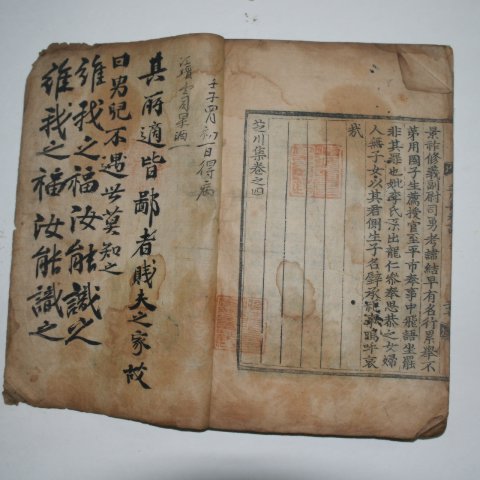 景祚修義副尉司勇考諱結早有名行累擧不
第用國子生薦授官至平市奉事中飛語坐罷
非其罪也妣李氏系出龍仁參奉思恭之女婦
人無子女以其君側生子名辟承祀嗚呼哀
哉
芝川集卷之四
壬子四月初一日得病
其所適皆鄙者賤夫之家故
曰男兒不遇世莫知之
誰我之福汝能識之
誰我之福汝能識之